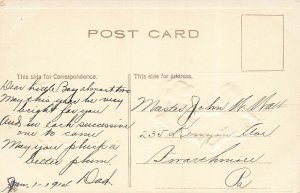 POST CARD
This side for Correspondence.
This side for Address.
Dear little Boy almost two
May this year be very
bright for you
And in each successive
one to come
May you pluck a
better plum.
Jan. 1-1914 Dad
Master John W. Watt
235 Kenyon Ave
Swarthmore
Pa